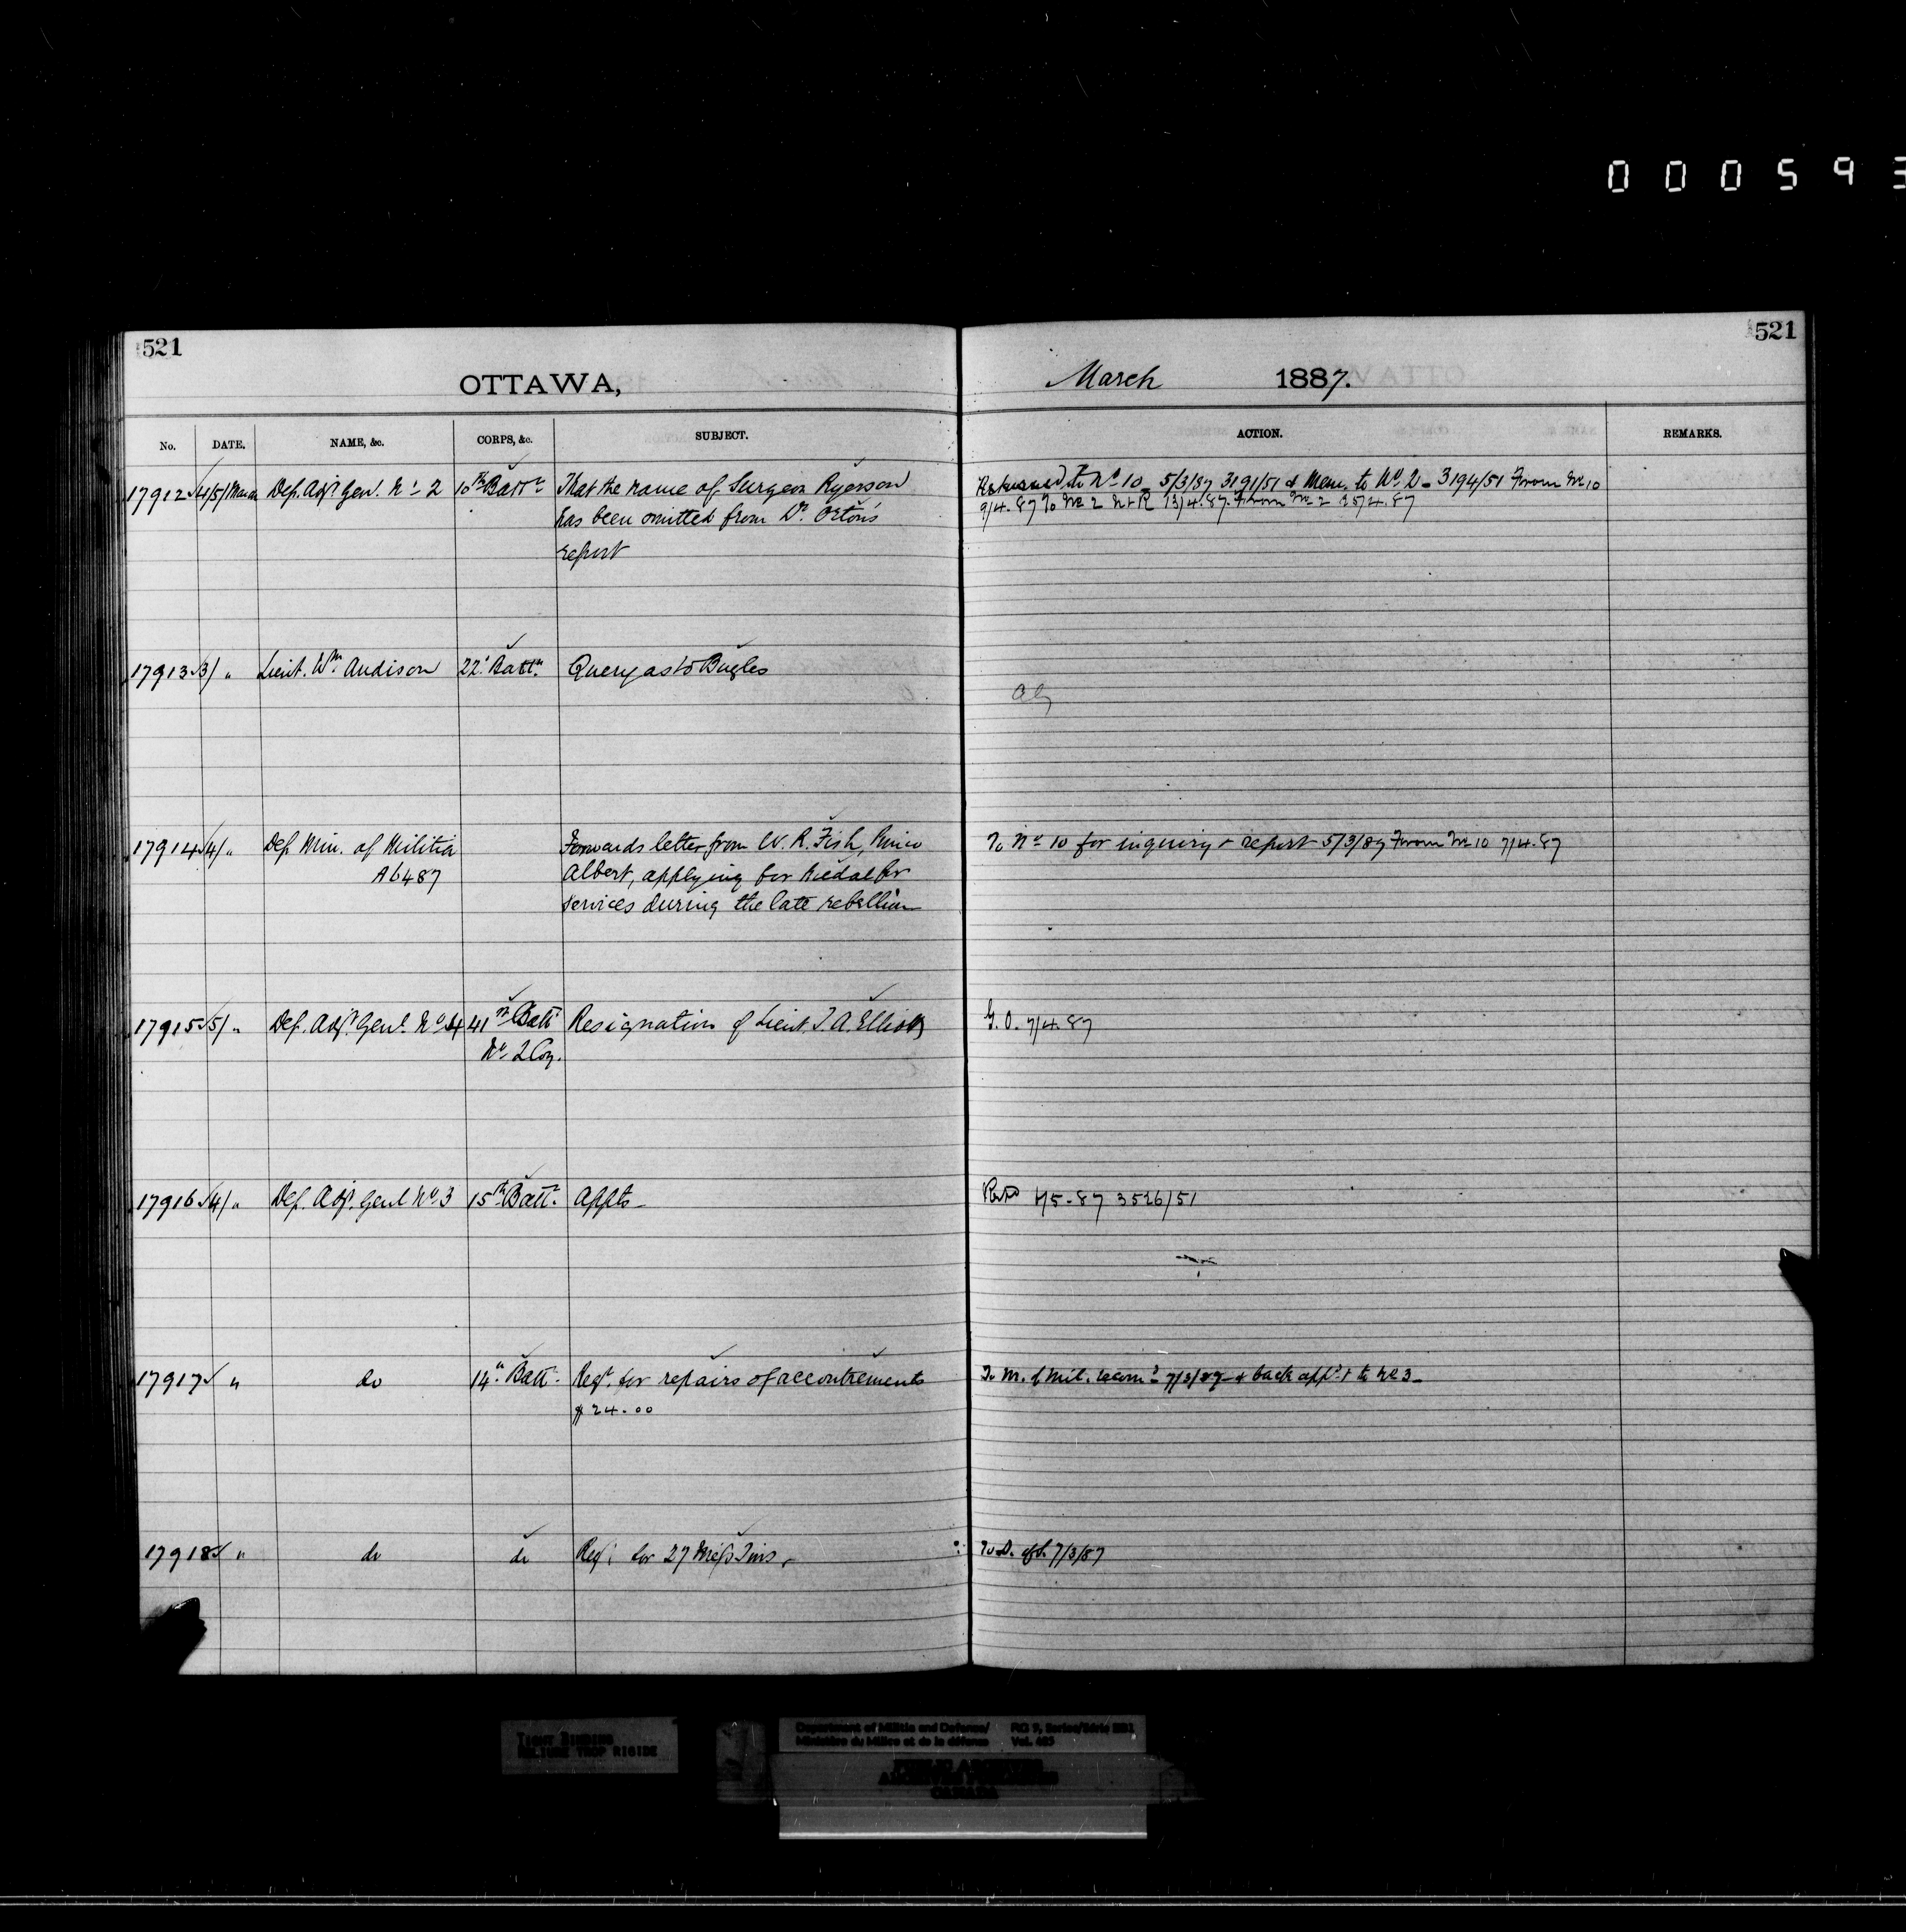 000593
521
521
OTTAWA,
March 1887.
No. DATE. NAME, &c. CORPS, &c. SUBJECT. ACTION. REMARKS.
17912 4/5/ March Dep. Adjt. Genl. No 2 10th Battn That the name of Surgeon Ryerson
has been omitted from Dr. Orton's
report
to No 10 5/3/87 3191/51 & Mem. to No 2 3194/51 From No 10
9/4.87 To No 2 13/4.87. From No 2 25/4.87
17913 3/ " Lieut. Wm. Audison 22' Battn. Query as to Bugles
17914 4/ " Dep Min. of Militia
A6487
Forwards letter from W. R. Fish, Prince
Albert, applying for Medal for
services during the late rebellion
To No 10 for inquiry & report 5/3/87 From No 10 7/4.87
17915 5/ " Dep. Adjt. Genl. No 4 41st Batt Resignation of Lieut. J. A. Elliott
No 2 Coy.
G. O. 7/4.87
17916 4/ " Dep. Adjt. Genl No 3 15th Battn. Appts
4/5-87 3526/51
17917 " do 14" Batt. Reqt. for repairs of accoutrements
$ 24.00
To M. of Mil. recomd 7/3/87 & back appd to No 3
17918 " do do Reqt. for 27 Mess Tins
To D. of S. 7/3/87
TIGHT BINDING
RELIURE TROP RIGIDE
Department of Militia and Defence/
Ministère du Milice et de la défense
RG 9, Series/Série IIB1
PUBLIC ARCHIVES
ARCHIVES PUBLIQUES
CANADA